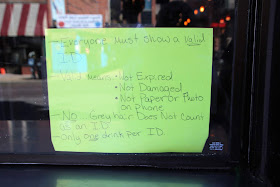 - Everyone Must Show a Valid
ID
- Valid Means: • Not Expired
• Not Damaged
• Not Paper or Photo
on Phone
- No Grey hair Does Not Count
as an ID
- Only One drink per ID